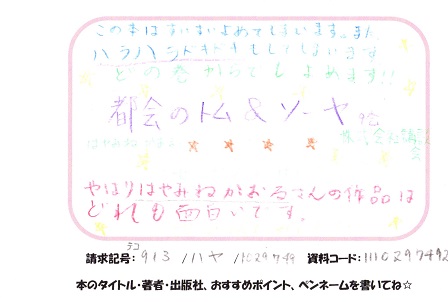 この本はすいすいよめてしまいます。また
ハラハラドキドキもしてしまいます
どの巻からでもよめます!!
都会のトム&ソーヤ
はやみねかおる
株式会社講談
会
やはりはやみねかおるさんの作品は
どれも面白いです。
請求記号: 913 /ハヤ/ 資料コード:
本のタイトル・著者・出版社、おすすめポイント、ペンネームを書いてね☆